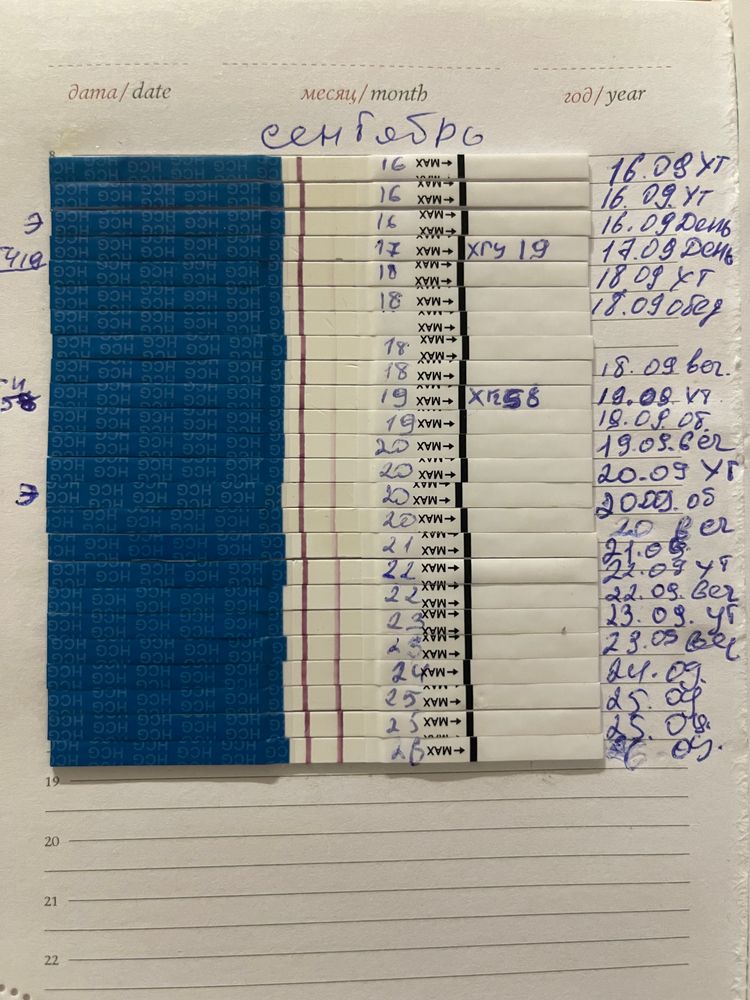 дата/date месяц/month год/year
сентябрь
8
16 ←MAX 16.09 УТ
16 ←MAX 16.09 УТ
Э 16 ←MAX 16.09 День
17 ←MAX ХГЧ 19 17.09 День
18 ←MAX 18 09 УТ
18 ←MAX 18.09 обед
←MAX
18 ←MAX
18 ←MAX 18.09 веч.
19 ←MAX 19.09 УТ
19 ←MAX 19.09.об.
20 ←MAX 19.09.веч
20 ←MAX 20.09 УТ
Э 20 ←MAX 20.09.об
20 ←MAX 20 веч
21 ←MAX 21.09.
22 ←MAX 22.09 УТ
22 ←MAX 22.09.веч
23 ←MAX 23.09.УТ
23 ←MAX 23.09 веч
24 ←MAX 24.09.
25 ←MAX 25.09
25 ←MAX 25.09.
HCG 26 ←MAX 26 09.
19
20
21
22